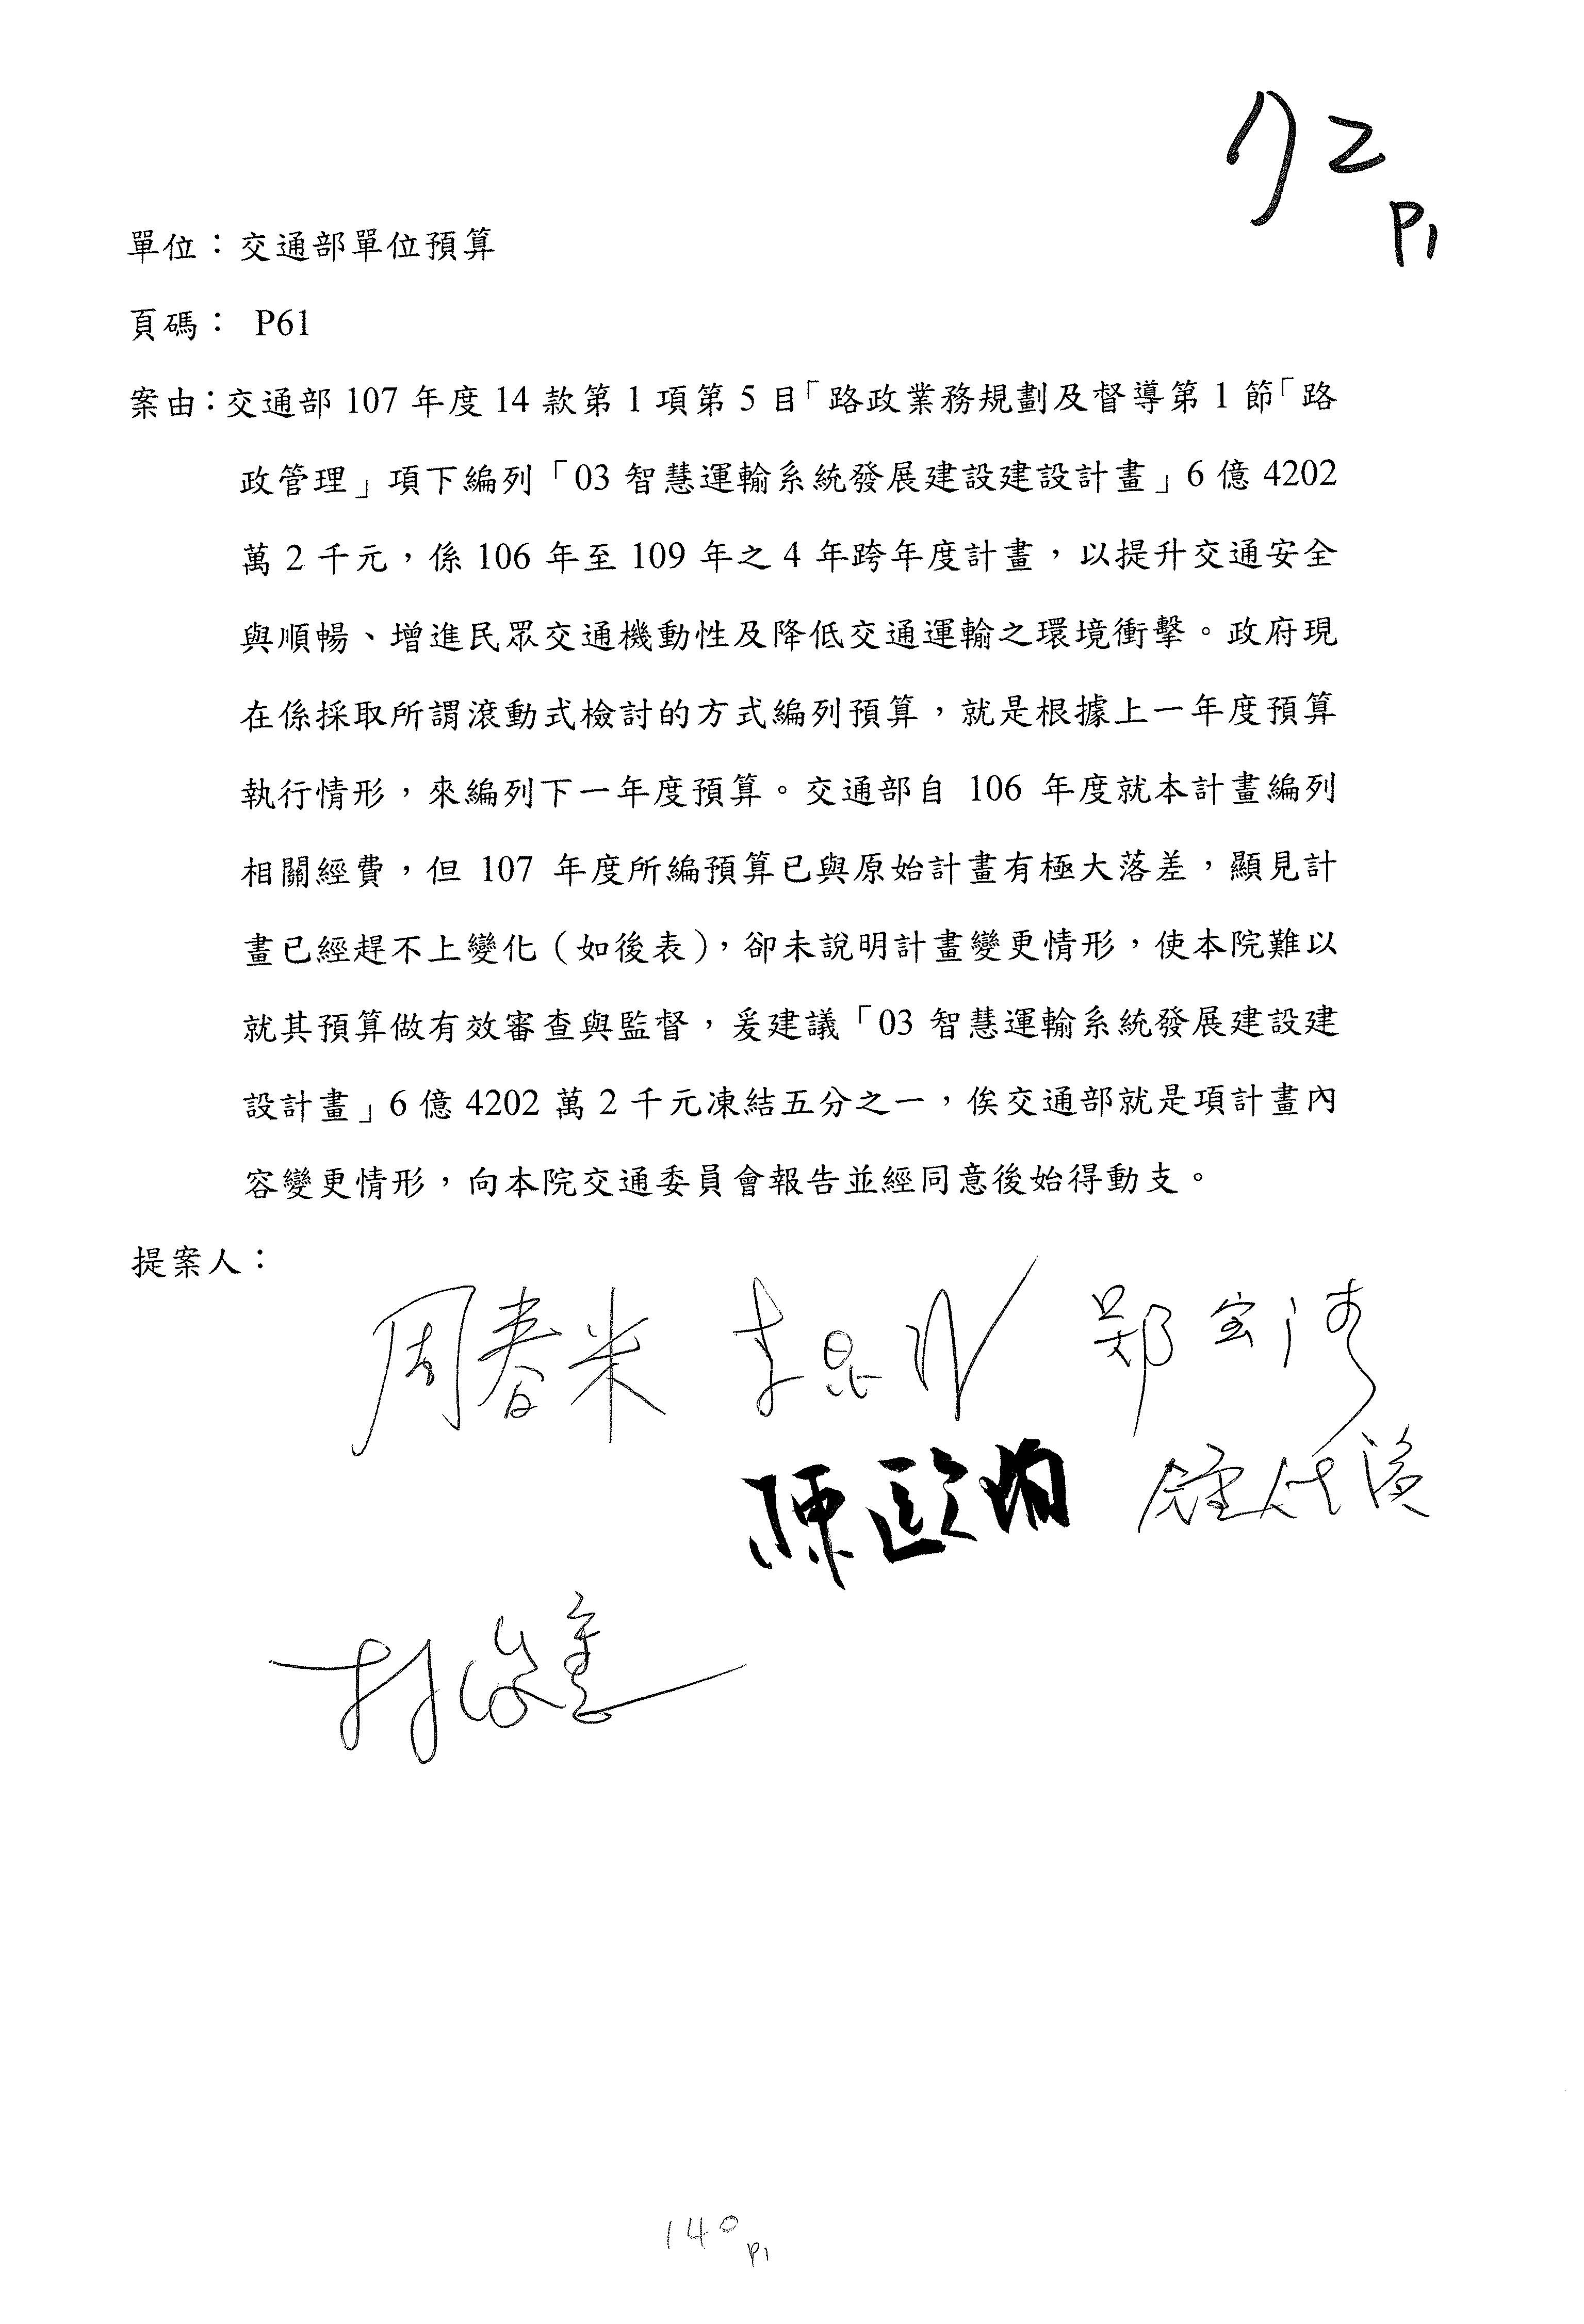 72
P1
單位：交通部單位預算
頁碼： P61
案由：交通部 107 年度 14 款第 1 項第 5 目「路政業務規劃及督導第 1 節「路
政管理」項下編列「03 智慧運輸系統發展建設建設計畫」6 億 4202
萬 2 千元，係 106 年至 109 年之 4 年跨年度計畫，以提升交通安全
與順暢、增進民眾交通機動性及降低交通運輸之環境衝擊。政府現
在係採取所謂滾動式檢討的方式編列預算，就是根據上一年度預算
執行情形，來編列下一年度預算。交通部自 106 年度就本計畫編列
相關經費，但 107 年度所編預算已與原始計畫有極大落差，顯見計
畫已經趕不上變化（如後表），卻未說明計畫變更情形，使本院難以
就其預算做有效審查與監督，爰建議「03 智慧運輸系統發展建設建
設計畫」6 億 4202 萬 2 千元凍結五分之一，俟交通部就是項計畫內
容變更情形，向本院交通委員會報告並經同意後始得動支。
提案人：
周春米 李昆 鄭
陳歐珀
林俊憲
140
P1